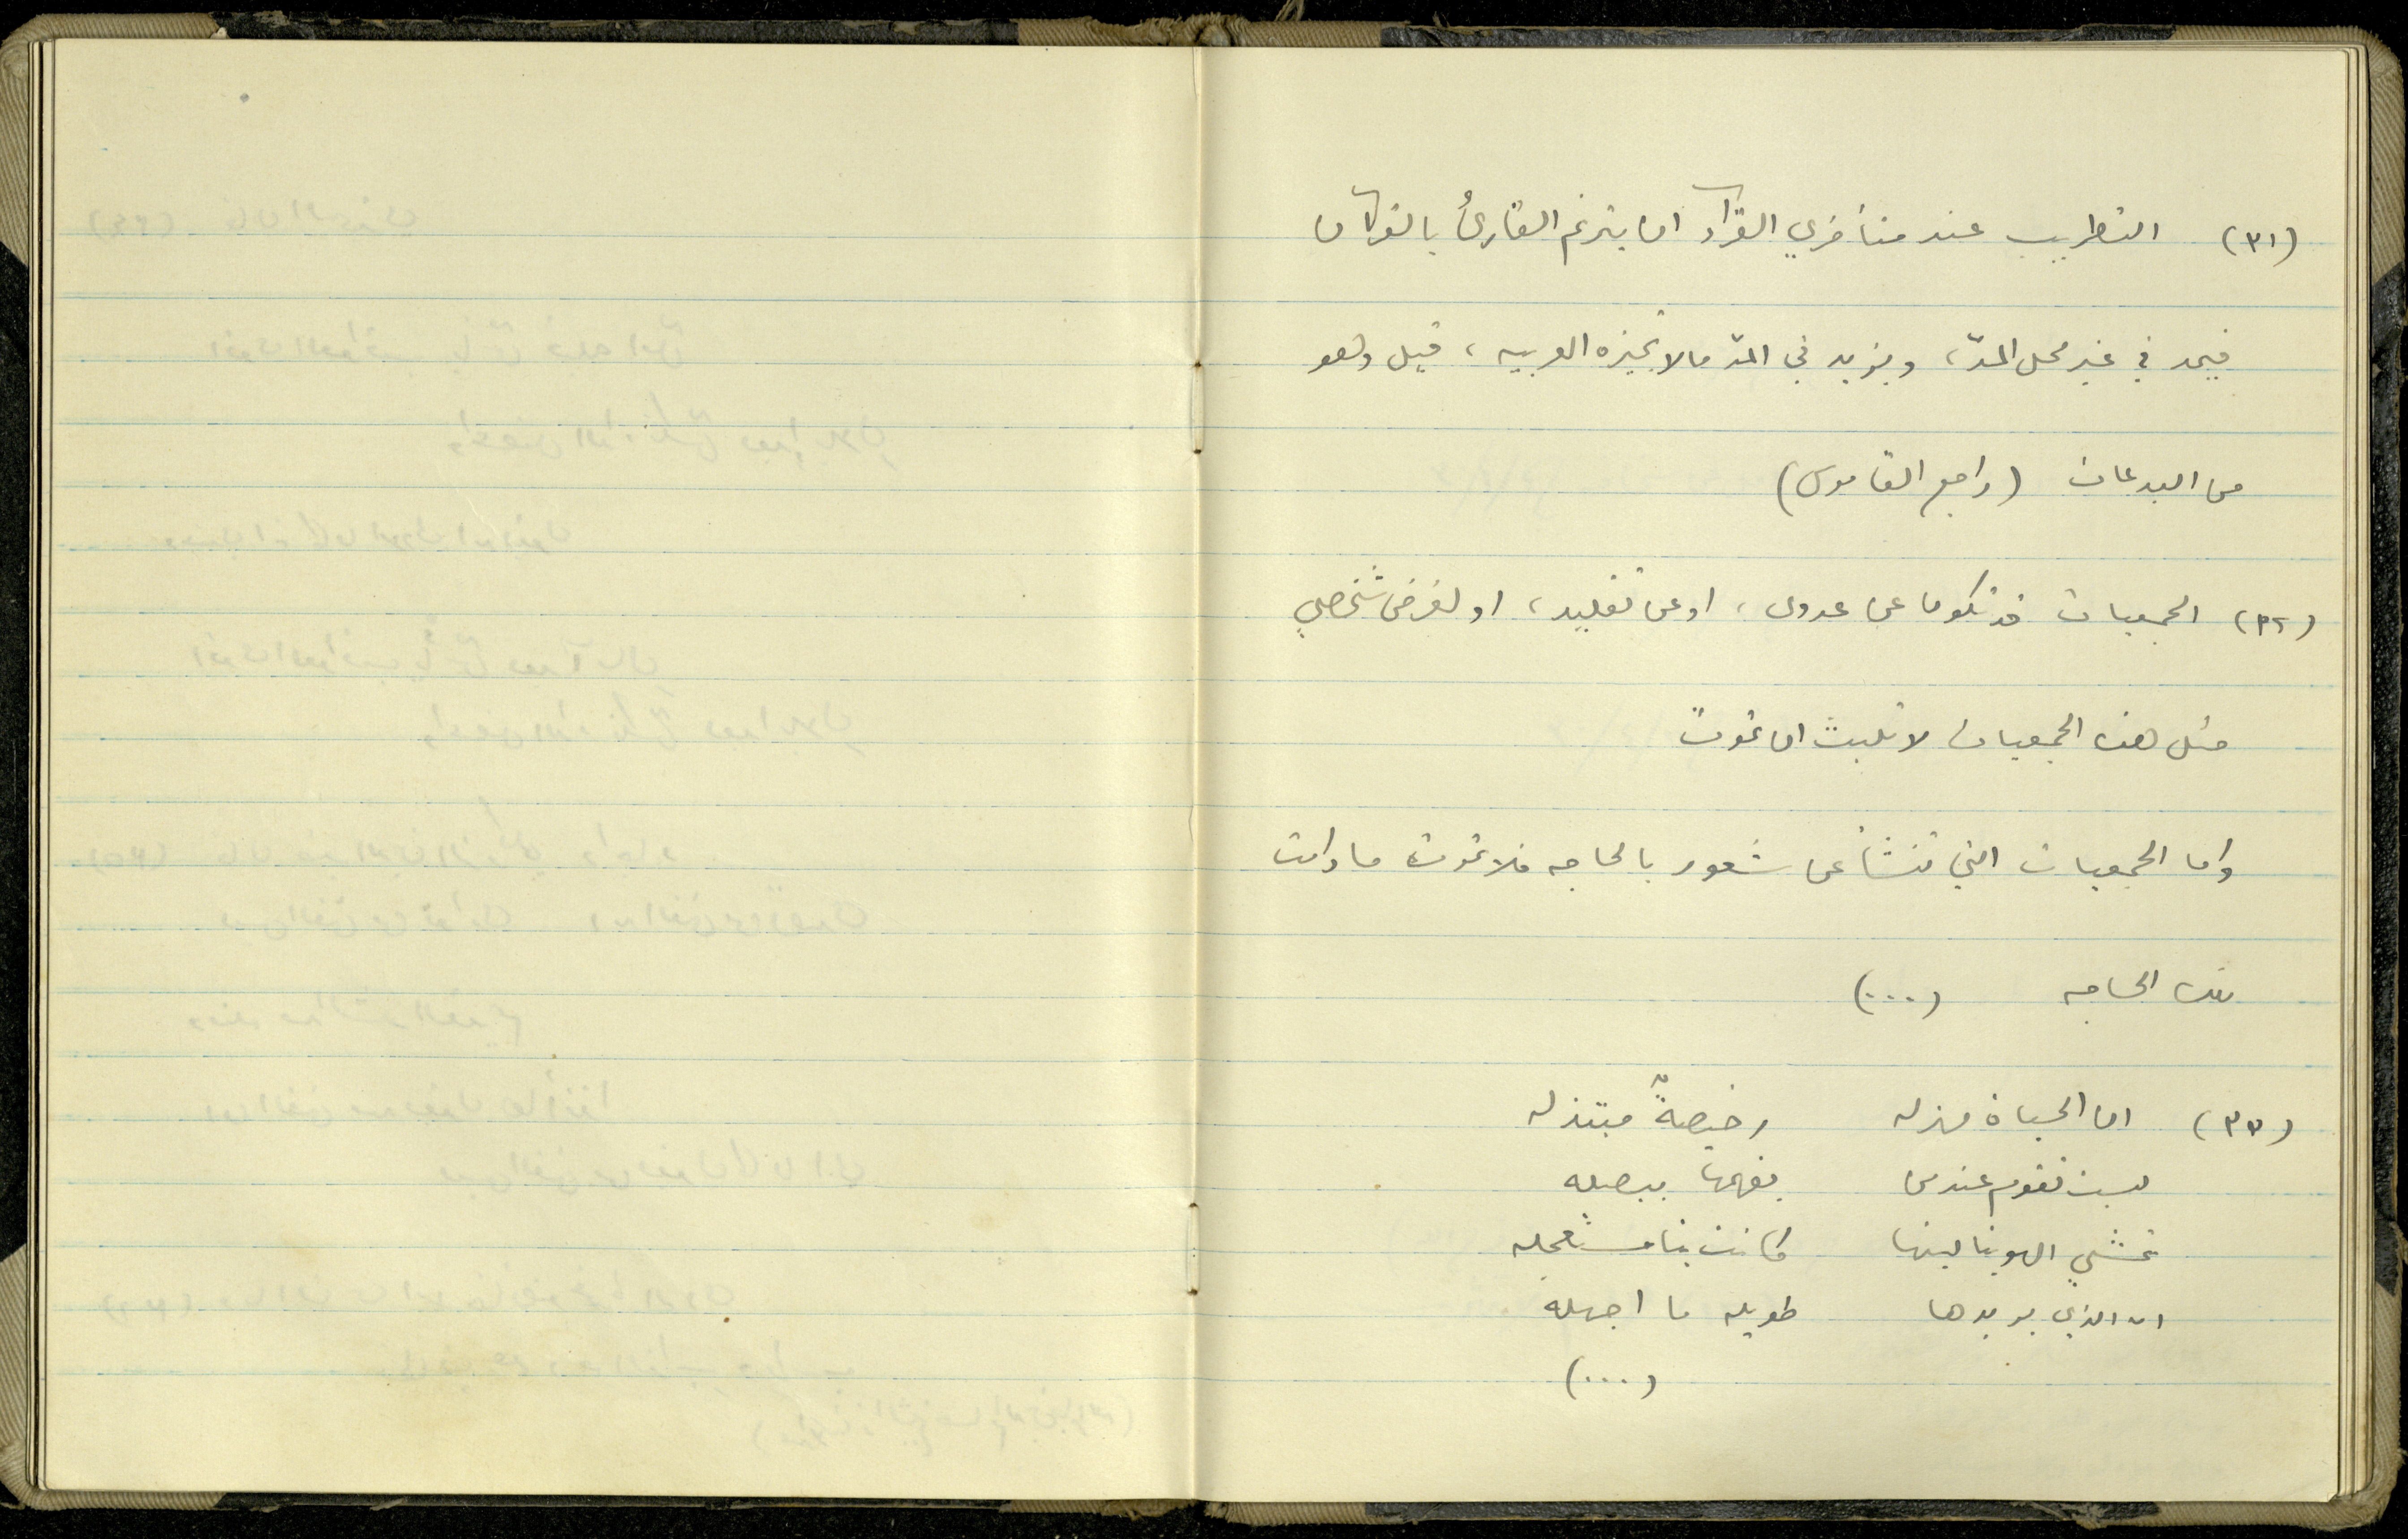 (٣١) التطريب عند متأخري القرّاء ان يترنم القارئ بالقرآن
فيمد في غير محل المدّ، ويزيد في المدّ ما لا تجيزه العربيه، قيل وهو
من البدعات (راجع القاموس)
(٣٢) الجمعيات قد تكون عن عدوى، او عن تقليد، او لغرض شخصي
مثل هذه الجمعيات لا تلبث ان تموت
واما الجمعيات التي تنشأ عن شعور بالحاجه فلا تموت ما دامت
تلك الحاجه (...)
(٣٣) ان الحياة مهزله رخيصةٌ مبتذله
ليست تقوم عند من يفهمها ببصله
تمشي الهوينا ليتها كانت بنا مستعجله
ان الذي يريدها طويله ما اجهله
(...)